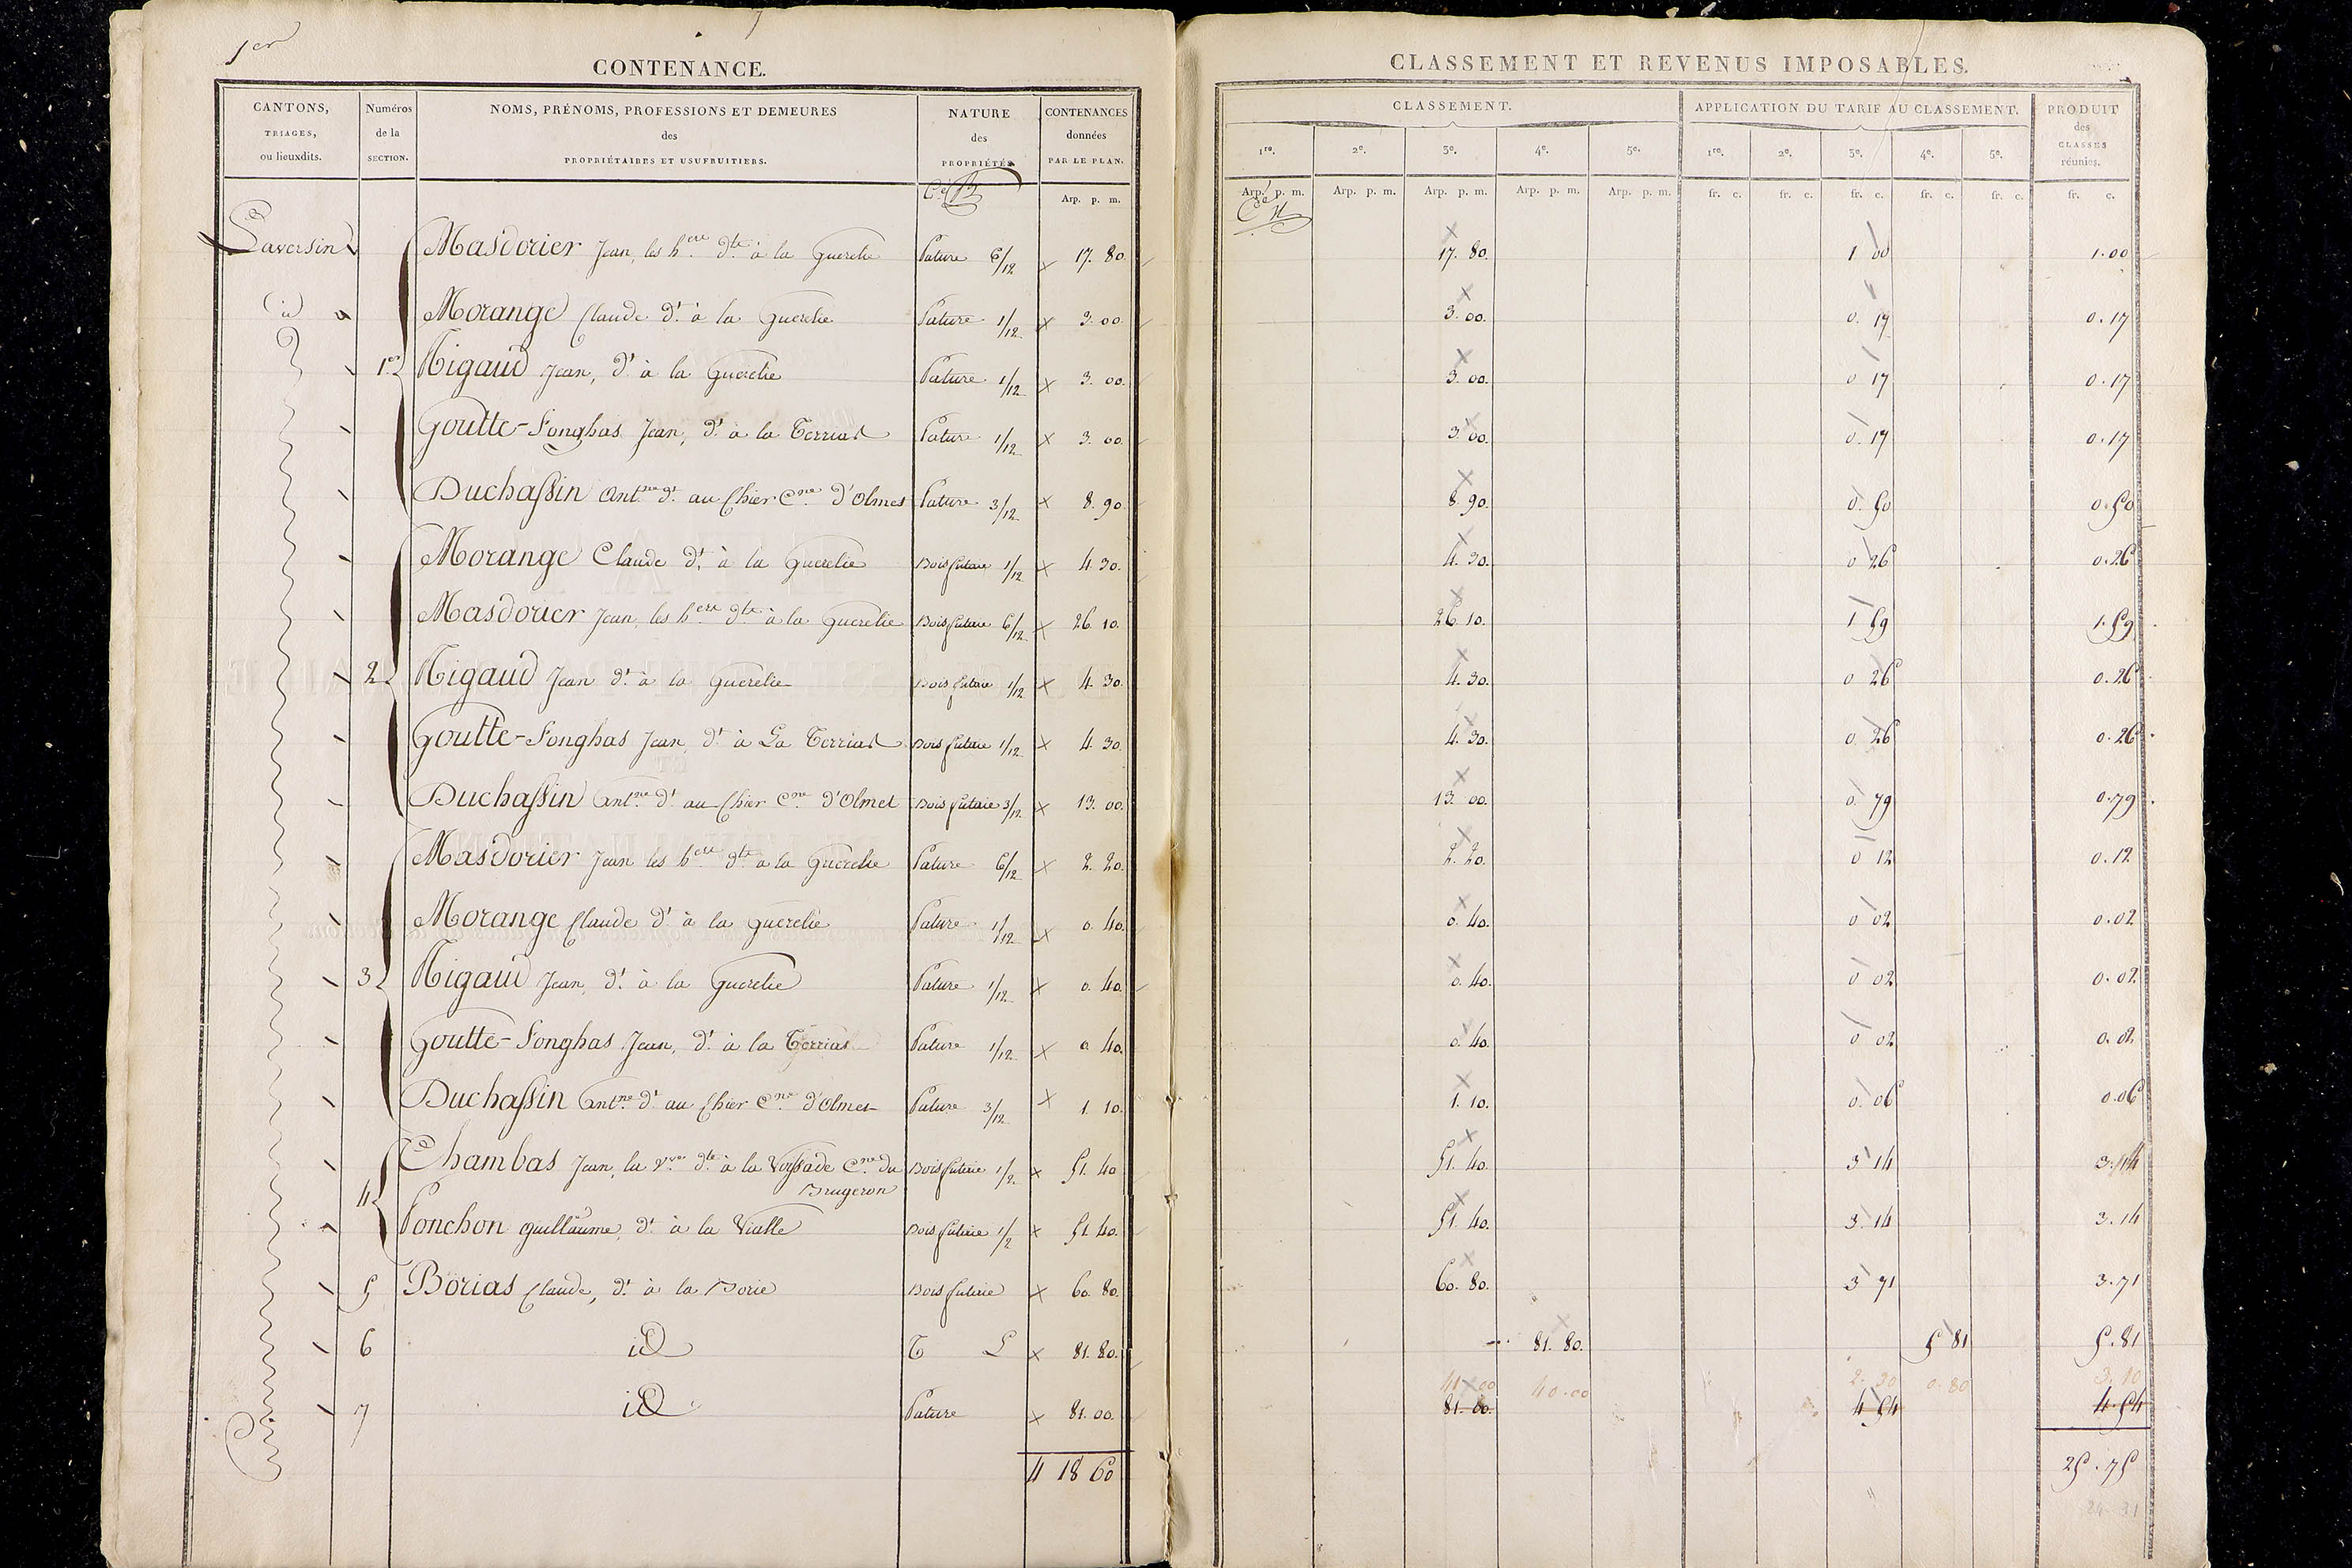 1er
CONTENANCE.
CANTONS, TRIAGES, ou lieuxdits.
Numéros de la SECTION.
NOMS, PRÉNOMS, PROFESSIONS ET DEMEURES des PROPRIÉTAIRES ET USUFRUITIERS.
NATURE des PROPRIÉTÉS
CONTENANCES données PAR LE PLAN.
Arp. p. m.
CLASSEMENT ET REVENUS IMPOSABLES.
CLASSEMENT.
APPLICATION DU TARIF AU CLASSEMENT.
PRODUIT des CLASSES réunies.
1re. 2e. 3e. 4e. 5e. 1re. 2e. 3e. 4e. 5e.
Arp. p. m. Arp. p. m. Arp. p. m. Arp. p. m. Arp. p. m. fr. c. fr. c. fr. c. fr. c. fr. c. fr. c.
Laversin Masdorier Jean, les hers dts à la Guerelie Pature 6/12 × 17. 80. 17. 80. 1 00 1.00
id Morange Claude dt à la Guerelie Pature 1/12 × 3. 00. 3. 00. 0. 17 0.17
1er Rigaud Jean, dt à la Guerelie Pature 1/12 × 3. 00. 3. 00. 0 17 0.17
Goutte-Fonghas Jean, dt à la Terrias Pature 1/12 × 3. 00. 3. 00. 0. 17 0.17
Duchassin Antne dt au Chier Cne d'Olmet Pature 3/12 × 8. 90. 8. 90. 0. 50 0.50
Morange Claude dt à la Guerelie Bois futaie 1/12 × 4. 30. 4. 30. 0 26 0.26
Masdorier Jean, les hers dts à la Guerelie Bois futaie 6/12 × 26. 10. 26. 10. 1 59 1.59
2 Rigaud Jean dt à la Guerelie Bois futaie 1/12 × 4. 30. 4. 30. 0 26 0.26
Goutte-Fonghas Jean, dt à La Terrias Bois futaie 1/12 × 4. 30. 4. 30. 0. 26 0.26
Duchassin Antne dt au Chier Cne d'Olmet Bois futaie 3/12 × 13. 00. 13. 00. 0. 79 0.79
Masdorier Jean les hers dts à la Guerelie Pature 6/12 × 2. 20. 2. 20. 0 12 0.12
Morange Claude dt à la Guerelie Pature 1/12 × 0. 40. 0. 40. 0 02 0.02
3 Rigaud Jean, dt à la Guerelie Pature 1/12 × 0. 40. 0. 40. 0 02 0.02
Goutte-Fonghas Jean, dt à la Terrias Pature 1/12 × 0. 40. 0. 40. 0 02 0.02
Duchassin Antne dt au Chier Cne d'Olmet Pature 3/12 × 1. 10. 1. 10. 0. 06 0.06
Chambas Jean, la vve dte à la Cne du Bois futaie 1/2 × 51. 40 51. 40. 3 14 3.14
4 Brugeron
Ponchon Guillaume, dt à la Vialle Bois futaie 1/2 × 51. 40. 51. 40. 3. 14 3.14
5 Borias Claude, dt à la Borie Bois futaie × 60. 80. 60. 80. 3 71 3.71
6 id T L × 81. 80. 81. 80. 5 81 5.81
41 00 40.00 2. 30 0.80 3.10
7 id Pature × 81. 00. 81. 00. 4 54 4.54
4 18 60 25.75